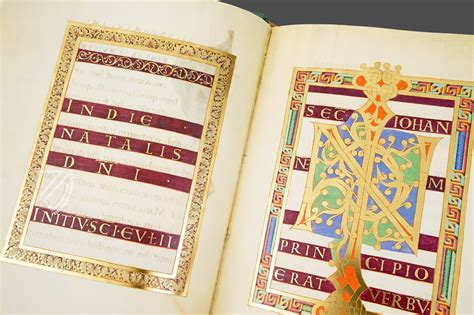 IN DIE
NATALIS
DNI
INITIU SCI EVLII
SEC IOHAN
NEM
IN
PRINCIPIO
ERAT VERBU